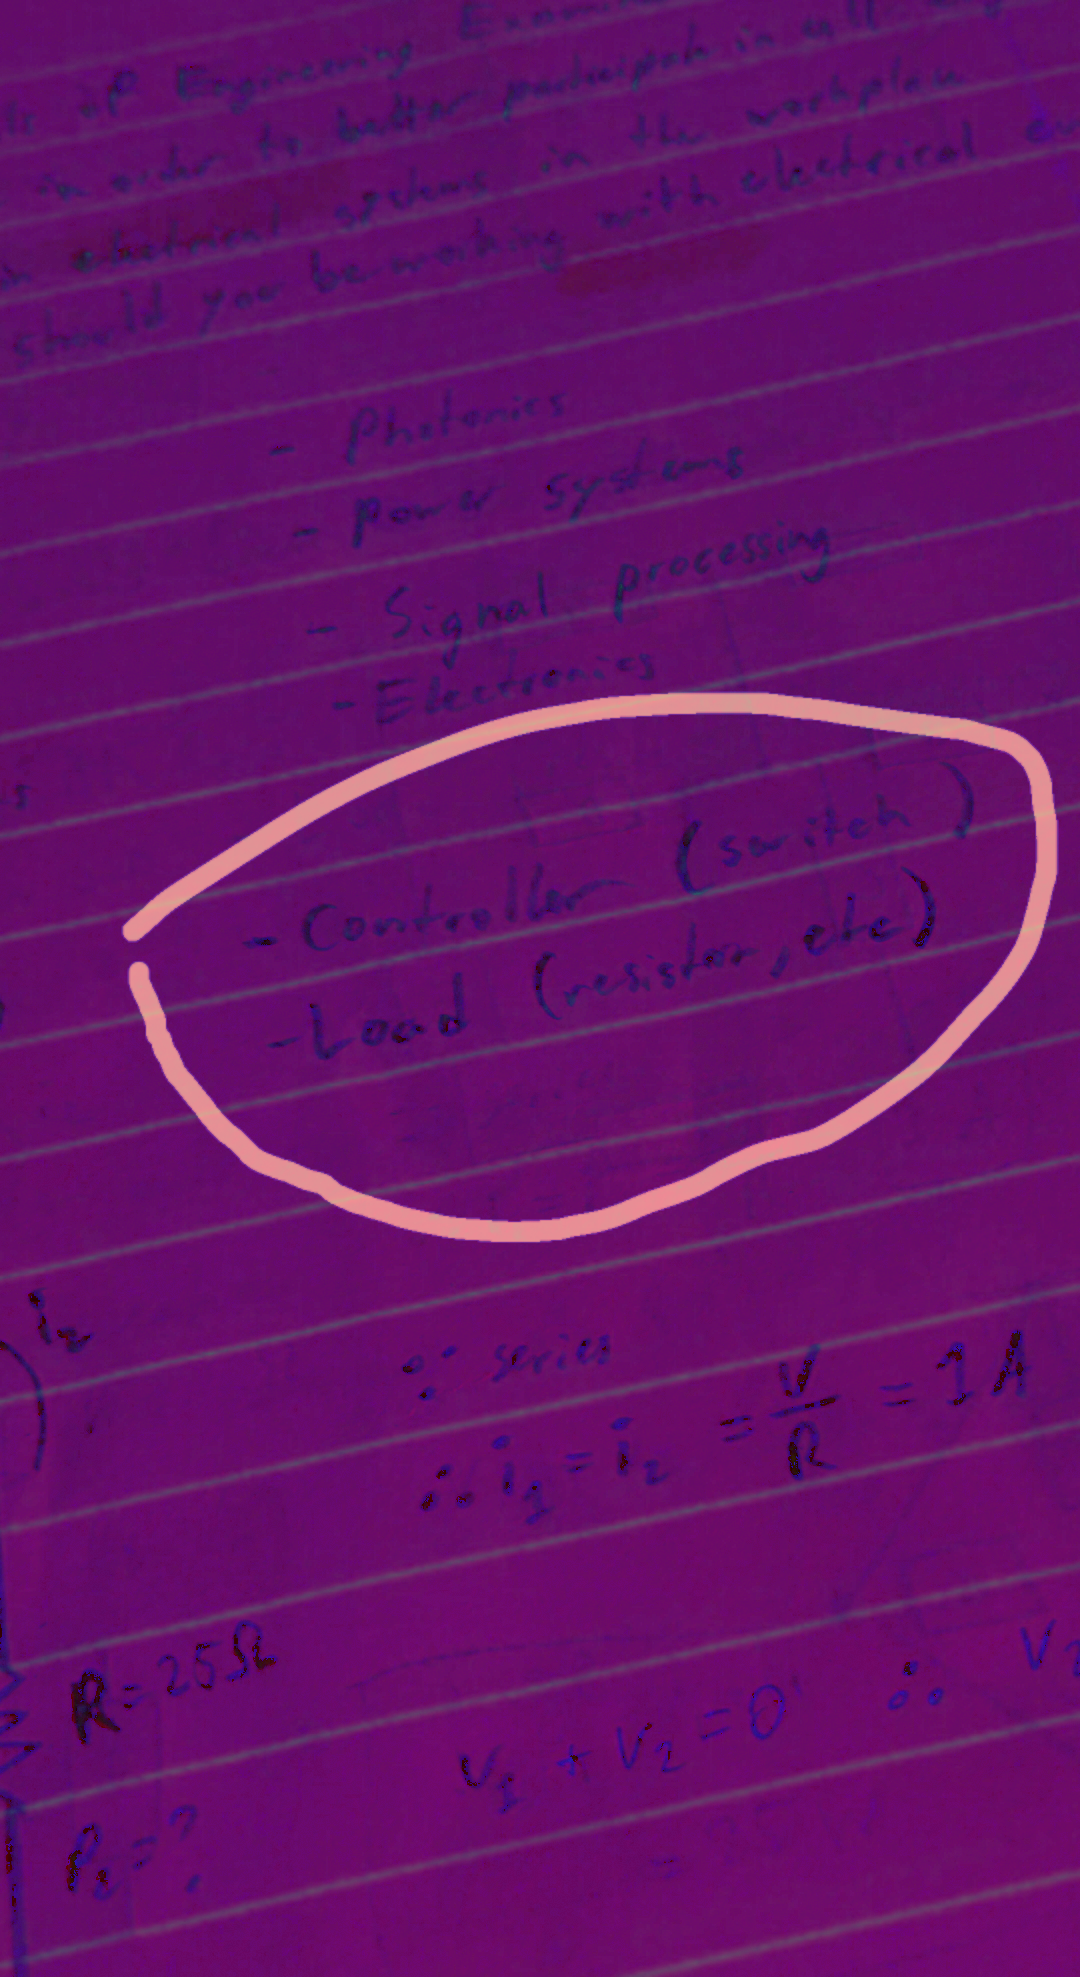 of Engineering
in order to better participate in all
electrical systems in the workplace
should you be working with electrical
- Photonics
- Power systems
- Signal processing
- Electronics
- Controller (switch)
- Load (resistor, etc)
i₂
∵ series
∴ i₁ = i₂ = V/R = 1A
R = 25Ω
V₁ + V₂ = 0 ∴ V₂
P₂ = ?